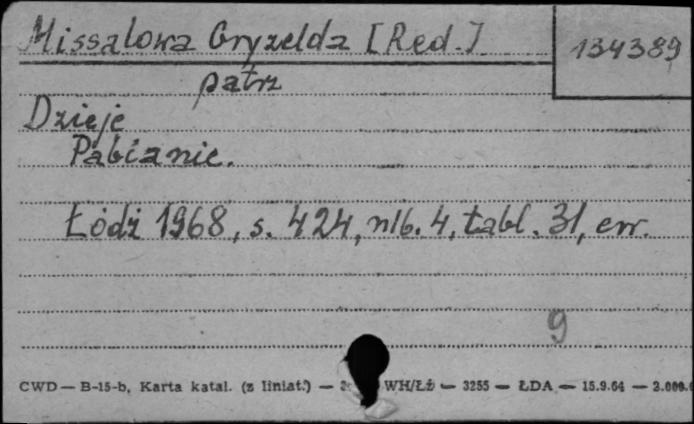 Missalowa Gryzelda [Red.]
134389
patrz
Dzieje
Pabianic.
Łódź 1968, s. 424, nlb. 4, tabl. 31, err.
9
CWD — B-15-b, Karta katal. (z liniat.) — WH/Łź — 3255 — ŁDA — 15.9.64 —